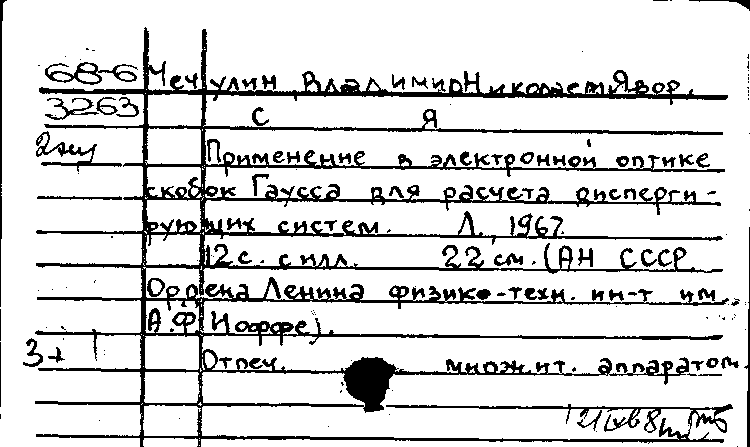 68-6 Мечулин, Владимир Николаем Явор,
3263 С Я
2 экз Применение в электронной оптике
скобок Гаусса для расчета дисперги-
рующих систем. Л., 1967.
12 с. с илл. 22 см. (АН СССР.
Ордена Ленина физико-техн. ин-т им.
А.Ф. Иоффе).
3+ Отпеч. множит. аппаратом.